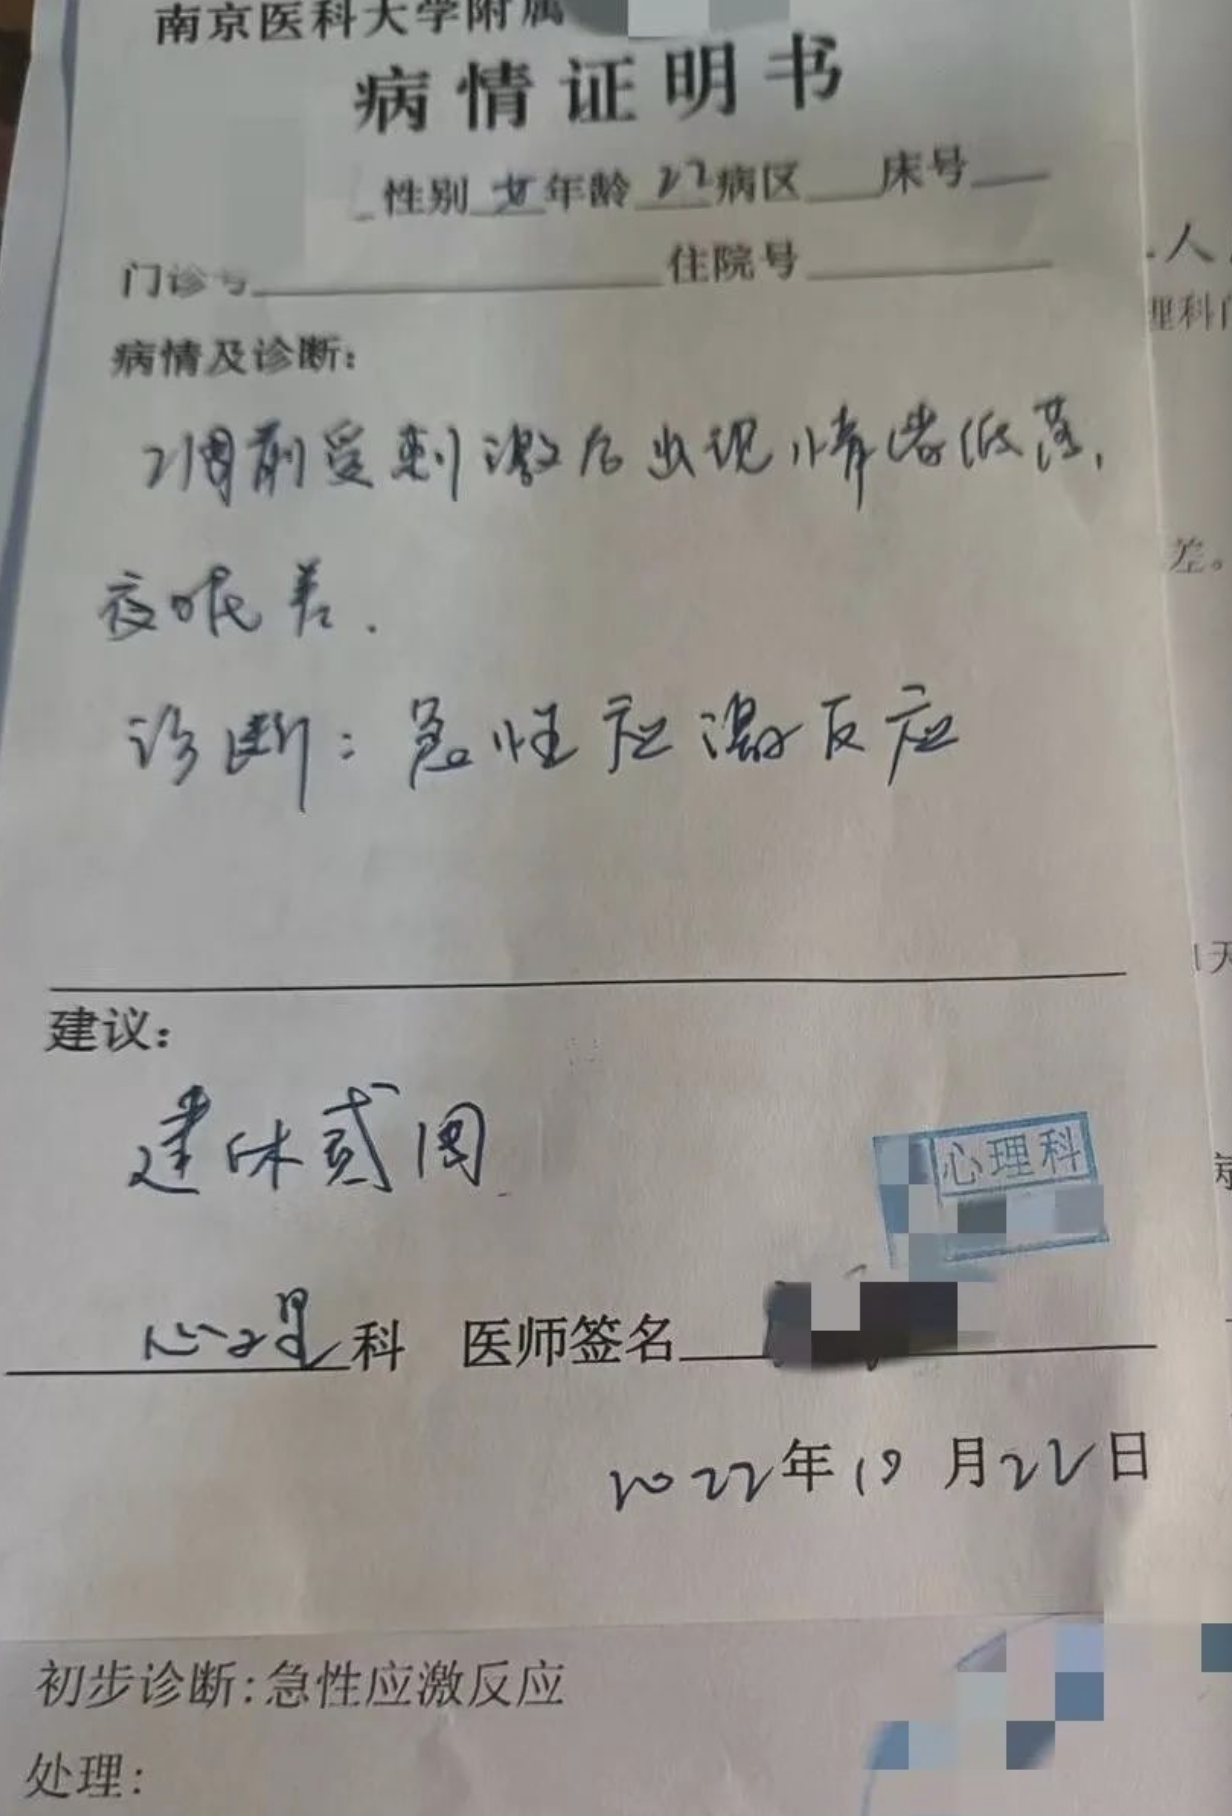 南京医科大学附属
病情证明书
性别 女 年龄 22 病区 床号
门诊号 住院号
病情及诊断:
2周前受刺激后出现情绪低落,
夜眠差.
诊断:急性应激反应
建议:
建休贰周
心理科
心理科 医师签名
2022年10月22日
初步诊断:急性应激反应
处理:
人
理科门
差。
1天